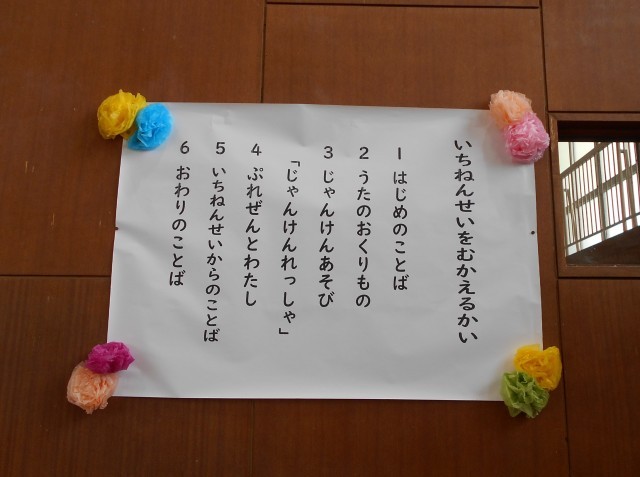 いちねんせいをむかえるかい
1 はじめのことば
2 うたのおくりもの
3 じゃんけんあそび
「じゃんけんれっしゃ」
4 ぷれぜんとわたし
5 いちねんせいからのことば
6 おわりのことば